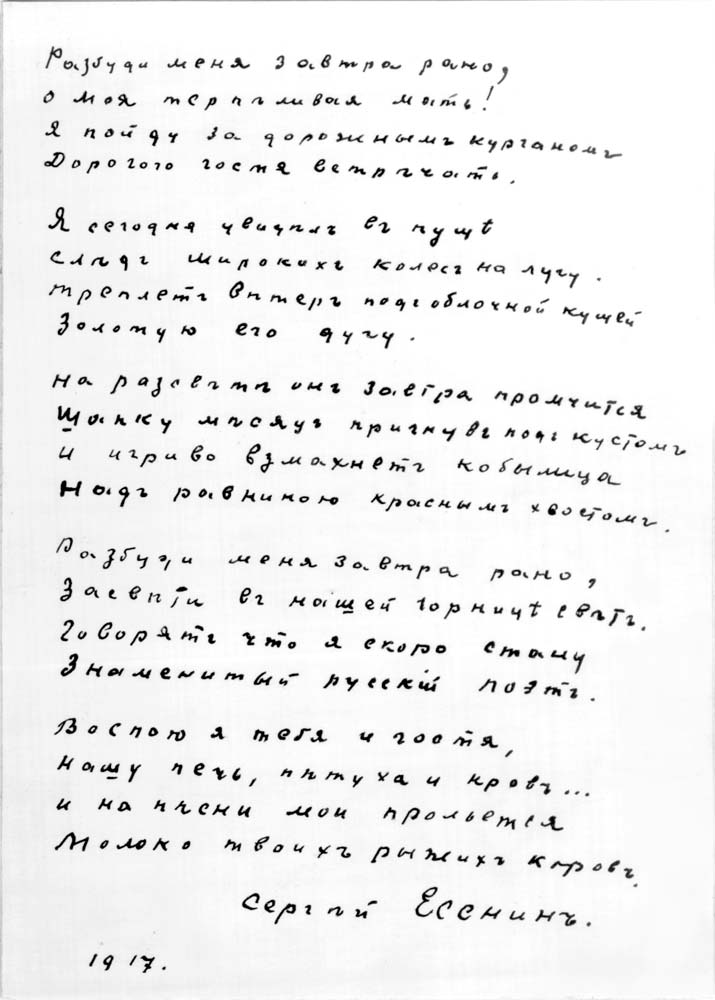 Разбуди меня завтра рано,
о моя терпѣливая мать!
Я пойду за дорожнымъ курганомъ
Дорогого гостя встрѣчать.
Я сегодня увидилъ въ пущѣ
слѣдъ широкихъ колесъ на лугу.
треплетъ вѣтеръ подъ облочной кущей
Золотую его дугу.
на разсвѣтѣ онъ завтра промчится
Шапку мѣсяцъ пригнувъ подъ кустомъ
и игриво взмахнетъ кобылица
Надъ равниною краснымъ хвостомъ.
Разбуди меня завтра рано,
Засвѣти въ нашей горницѣ свѣтъ.
Говорятъ что я скоро стану
Знаменитый русскій поэтъ.
Воспою я тебя и гостя,
нашу печь, пѣтуха и кровъ...
и на пѣсни мои прольется
Молоко твоихъ рыжихъ коровъ.
Сергѣй Есенинъ.
1917.